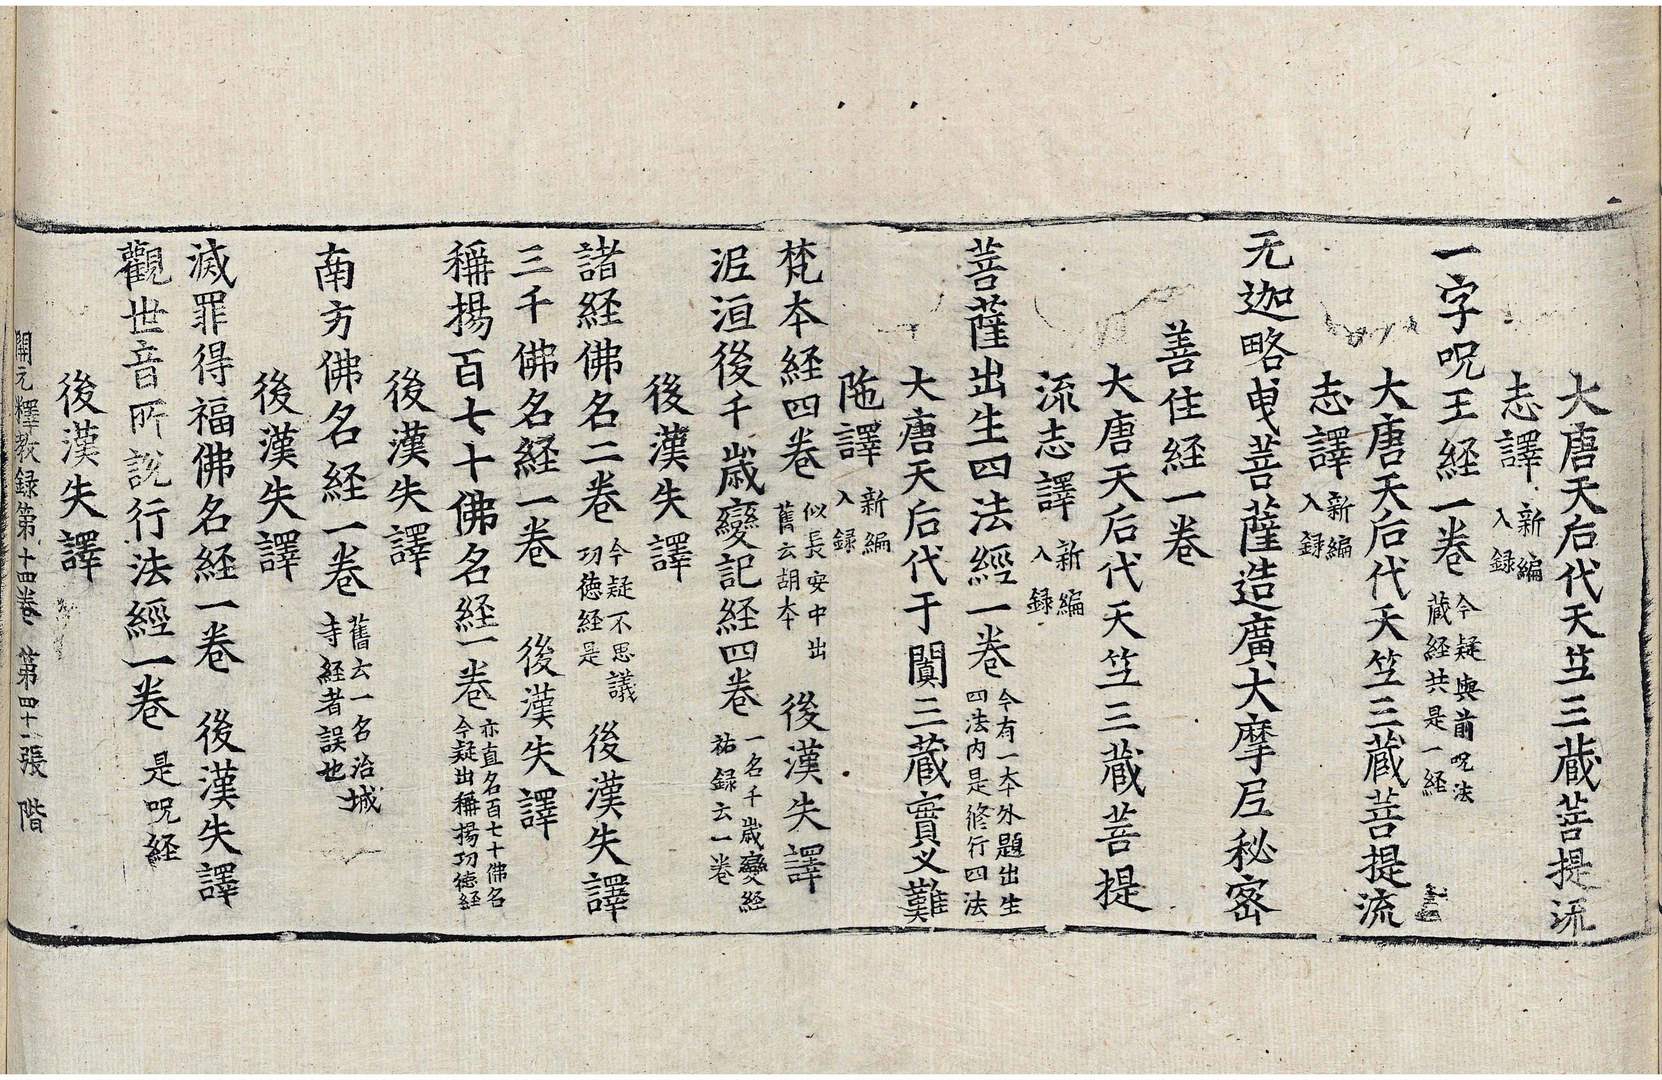 大唐天后代天竺三藏菩提流
志譯新編入録
一字呪王経一卷今疑與前呪法藏経共是一経
大唐天后代天竺三藏菩提流
志譯新編入録
无迦略曳菩薩造廣大摩尼秘密
善住経一卷
大唐天后代天竺三藏菩提
流志譯新編入録
菩薩出生四法經一卷今有一本外題出生四法内是修行四法
大唐天后代于闐三藏實叉難
陁譯新編入録
梵本経四卷似長安中出舊云胡本 後漢失譯
泥洹後千歳變記経四卷一名千歳變経祐録云一卷
後漢失譯
諸経佛名二卷今疑不思議功徳経是 後漢失譯
三千佛名経一卷 後漢失譯
稱揚百七十佛名経一卷亦直名百七十佛名今疑出稱揚功徳経
後漢失譯
南方佛名経一卷舊云一名治城寺経者誤也
後漢失譯
滅罪得福佛名経一卷 後漢失譯
觀世音所說行法經一卷 是呪経
後漢失譯
開元釋教録第十四卷 第四十一張 階